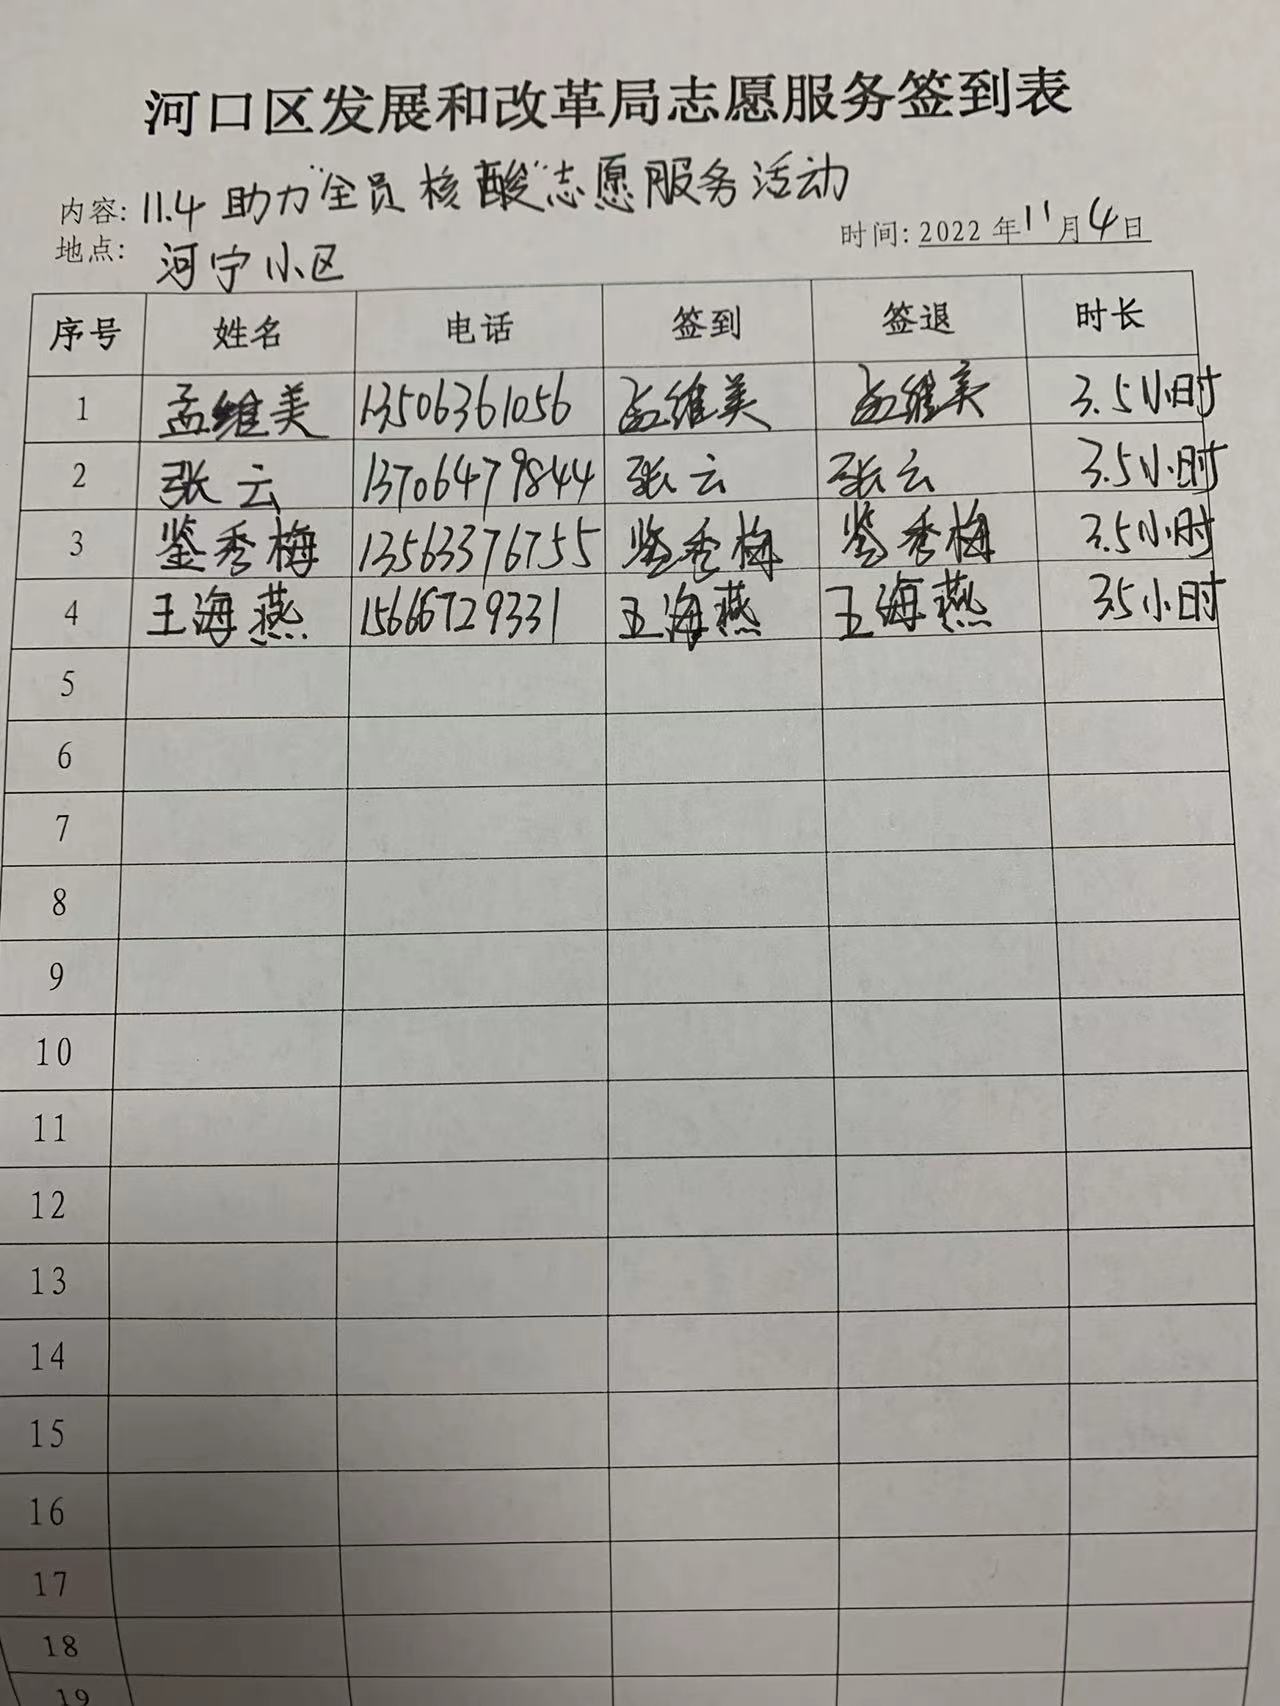 河口区发展和改革局志愿服务签到表
内容: 11.4 助力"全员核酸"志愿服务活动
地点: 河宁小区 时间: 2022年11月4日
序号 姓名 电话 签到 签退 时长
1 孟维美 13506361056 孟维美 孟维美 3.5小时
2 张云 13706479844 张云 张云 3.5小时
3 鉴秀梅 13563376755 鉴秀梅 鉴秀梅 3.5小时
4 王海燕 15666729331 王海燕 王海燕 3.5小时
5
6
7
8
9
10
11
12
13
14
15
16
17
18
19